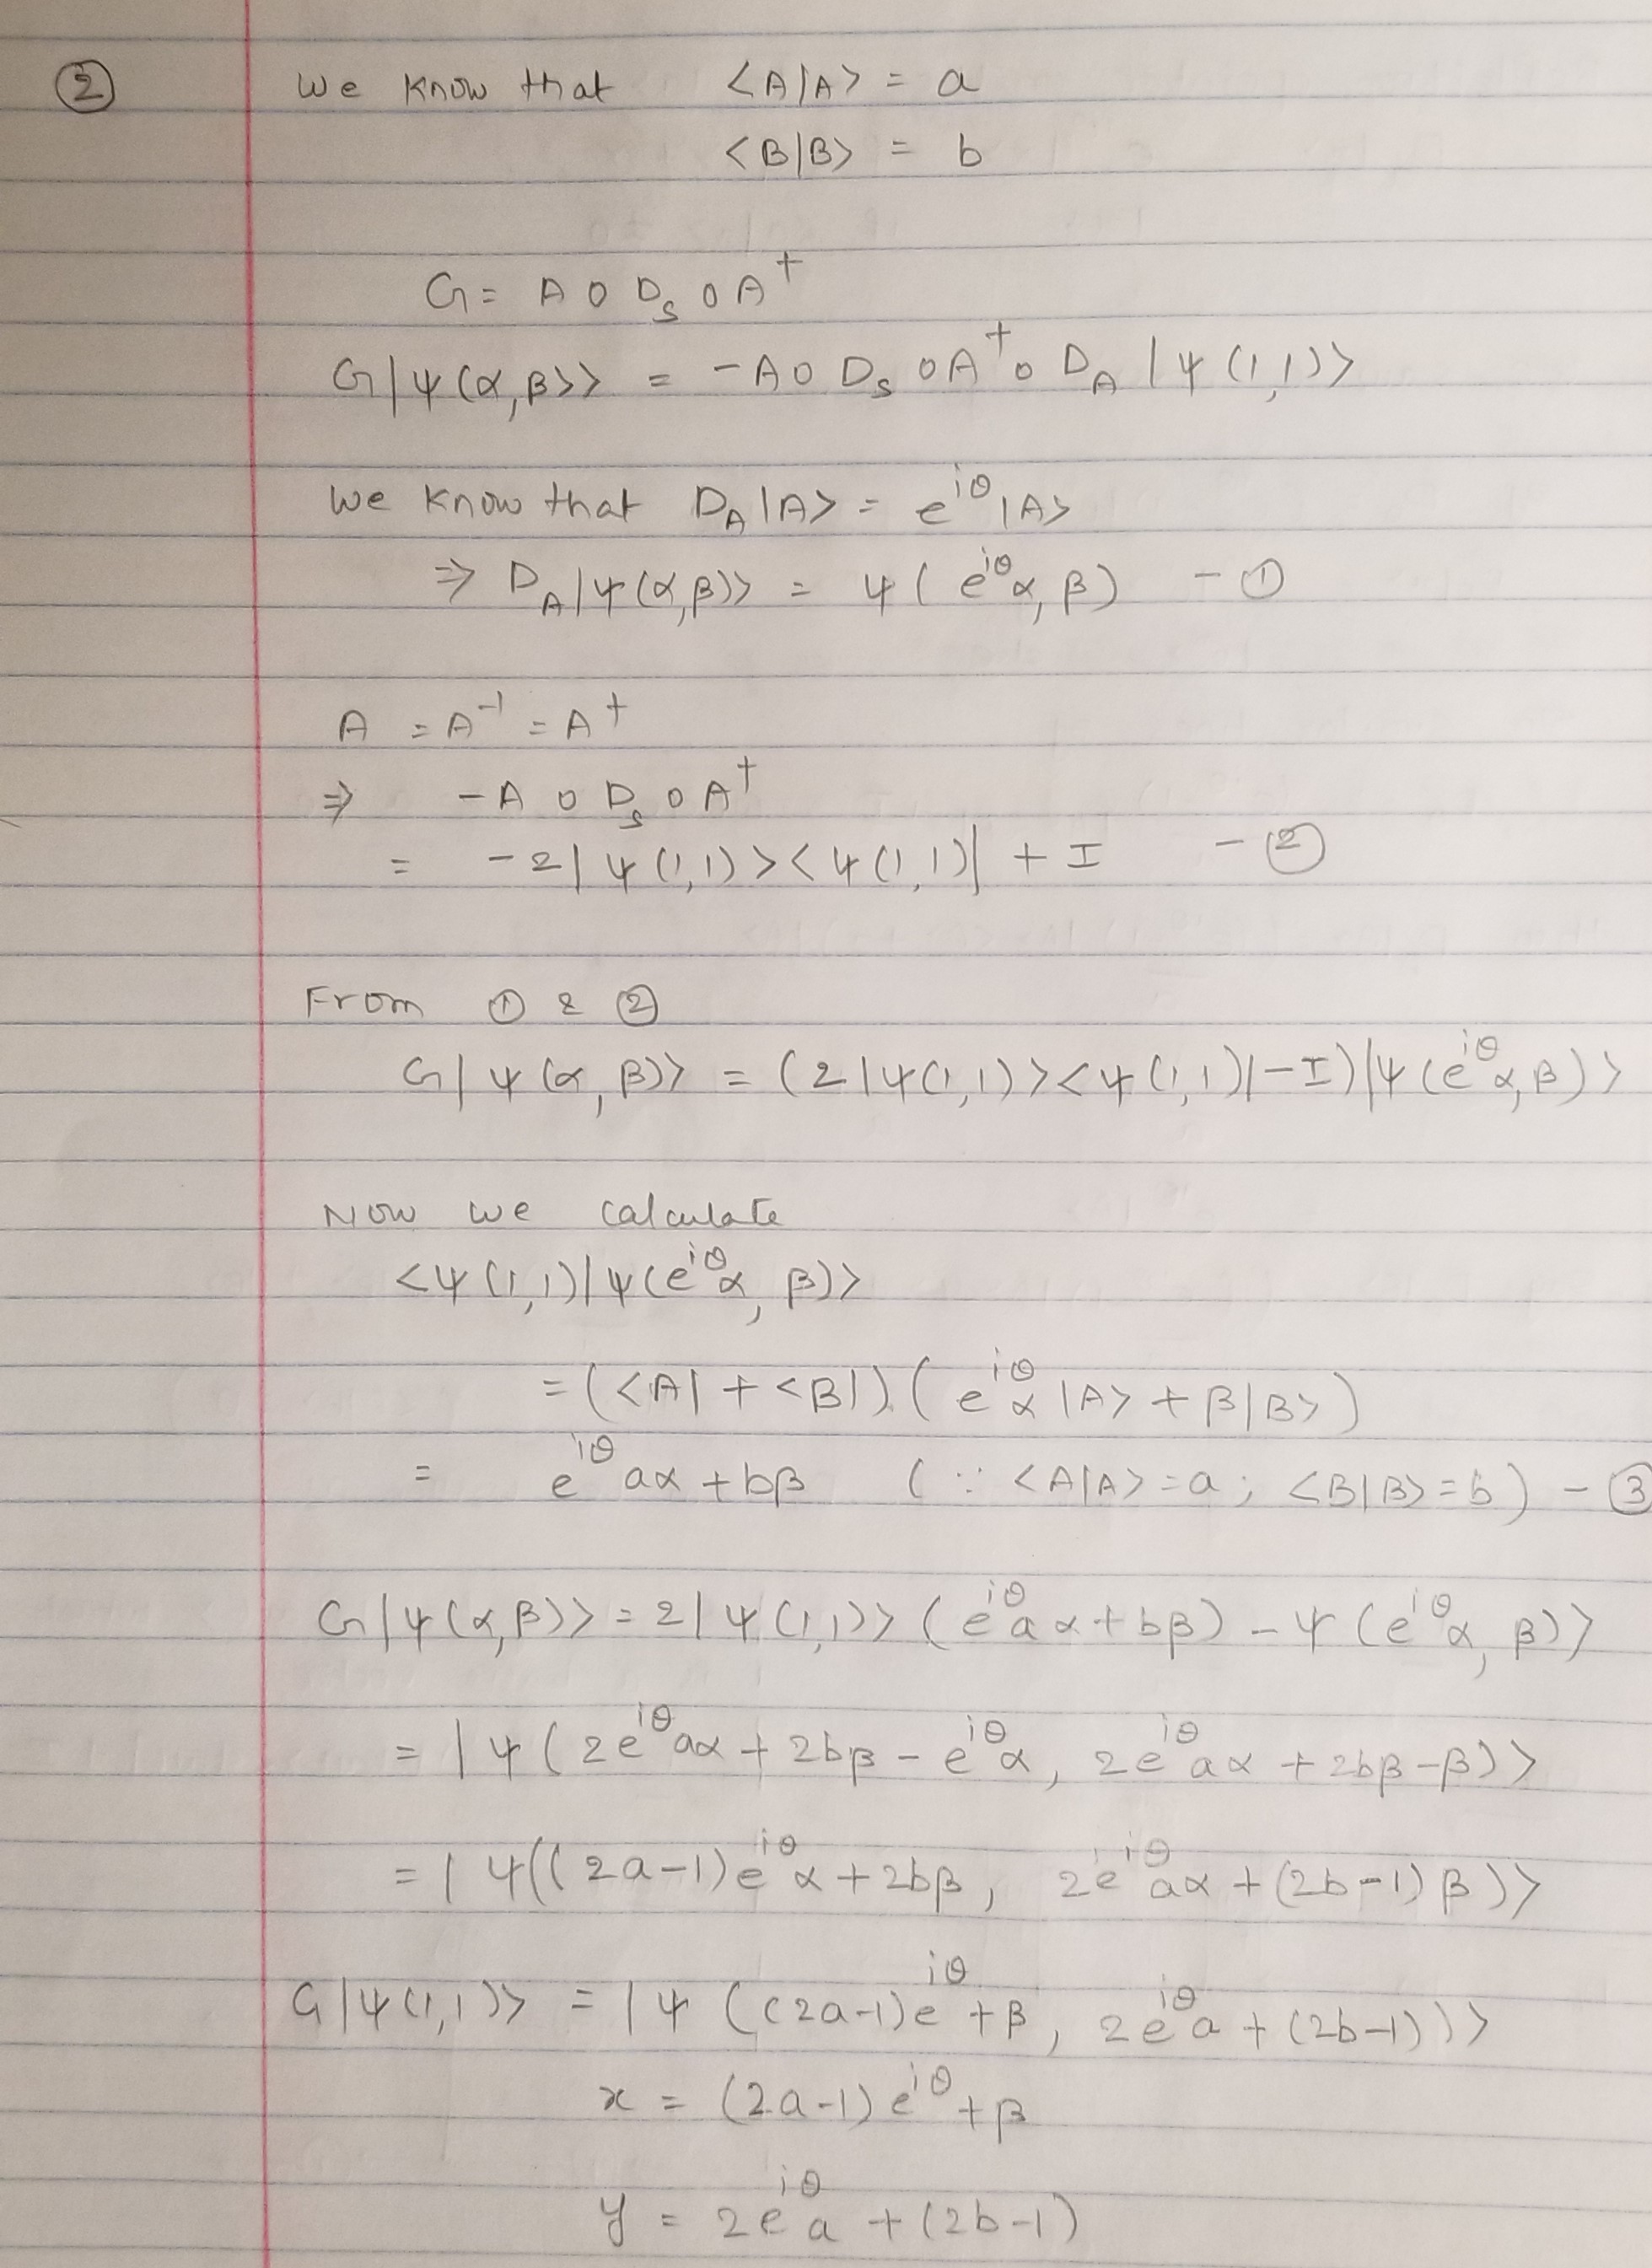 ②
We know that <A|A> = a
<B|B> = b
G = A o D_s o A^†
G|ψ(α,β)>> = -A o D_s o A^† o D_A |ψ(1,1)>
We know that D_A|A> = e^{iθ}|A>
⇒ D_A|ψ(α,β)>> = ψ(e^{iθ}α, β) - ①
A = A^{-1} = A^†
⇒ -A o D_s o A^†
= -2|ψ(1,1)><ψ(1,1)| + I - ②
From ① & ②
G|ψ(α,β)>> = (2|ψ(1,1)><ψ(1,1)|-I)|ψ(e^{iθ}α,β)>
Now we calculate
<ψ(1,1)|ψ(e^{iθ}α, β)>
= (<A| + <B|).(e^{iθ}α|A> + β|B>)
= e^{iθ}aα + bβ (∵ <A|A> = a; <B|B> = b) - ③
G|ψ(α,β)>> = 2|ψ(1,1)>> (e^{iθ}aα + bβ) - ψ(e^{iθ}α, β)>
= |ψ(2e^{iθ}aα + 2bβ - e^{iθ}α, 2e^{iθ}aα + 2bβ-β)>
= |ψ((2a-1)e^{iθ}α + 2bβ, 2e^{iθ}aα + (2b-1)β)>
G|ψ(1,1)> = |ψ((2a-1)e^{iθ} + β, 2e^{iθ}a + (2b-1))>
x = (2a-1)e^{iθ} + β
y = 2e^{iθ}a + (2b-1)